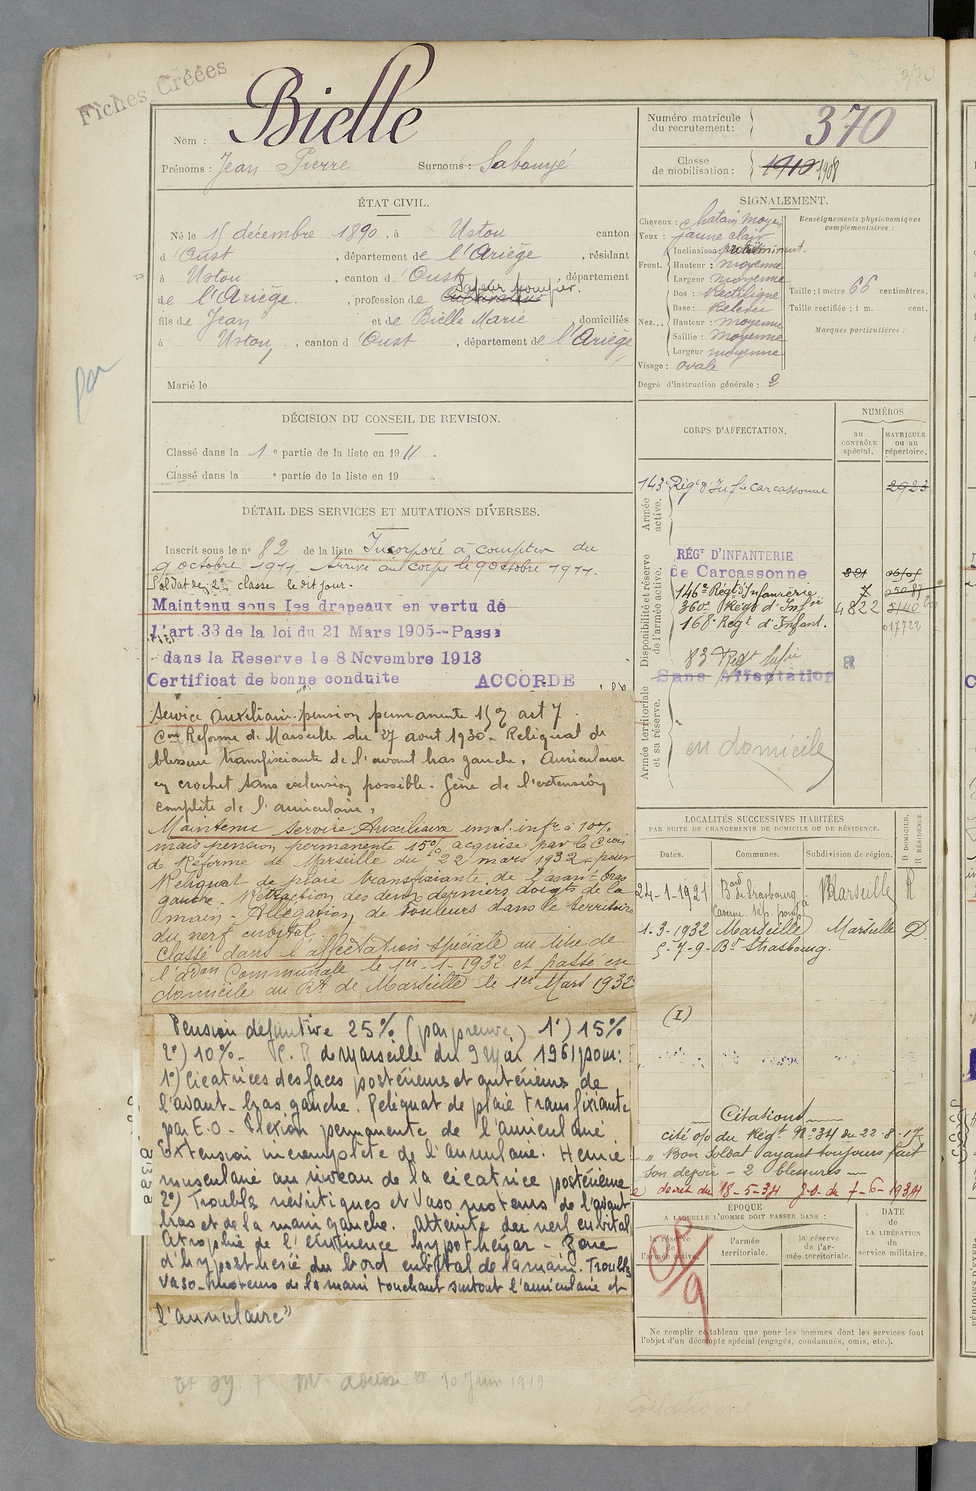 Fiches Créées
370
Bielle
Nom :
Prénoms : Jean Pierre Surnoms : Sabouyé
Numéro matricule du recrutement : 370
Classe de mobilisation : 1910 1908
ÉTAT CIVIL.
Né le 15 décembre 1890, à Ustou canton
d'Oust, département de l'Ariège, résidant
à Ustou, canton d'Oust, département
Sapeur pompier.
de l'Ariège, profession de Cultivateur
fils de Jean et de Bielle Marie, domiciliés
à Ustou, canton d'Oust, département de l'Ariège
Marié le
SIGNALEMENT.
Cheveux : chatain moyen
Yeux : jaune clair
Front. Inclinaison : proéminent.
Hauteur : moyenne
Largeur : moyenne
Nez... Dos : Rectiligne
Base : Relevée
Hauteur : moyenne
Saillie : moyenne
Largeur moyenne
Visage : ovale
Degré d'instruction générale : 2
Renseignements physionomiques complémentaires :
Taille : 1 mètre 66 centimètres.
Taille rectifiée : 1 m. cent.
Marques particulières :
DÉCISION DU CONSEIL DE REVISION.
Classé dans la 1e partie de la liste en 1911.
Classé dans la e partie de la liste en 19
DÉTAIL DES SERVICES ET MUTATIONS DIVERSES.
Inscrit sous le no 82 de la liste Incorporé à compter du
9 octobre 1911. Arrivé au corps le 9 octobre 1911.
Soldat de 2e classe le dit jour.
Maintenu sous les drapeaux en vertu de
l'art.33 de la loi du 21 Mars 1905--Passé
dans la Reserve le 8 Novembre 1913
Certificat de bonne conduite ACCORDE
Service Auxiliaire. pension permanente 15% art 7.
Con Réforme de Marseille du 27 aout 1930. Reliquat de
blessure transfixiante de l'avant bras gauche. Auriculaire
en crochet sans extension possible. Gêne de l'extension
complète de l'annulaire.
Maintenu Service Auxiliaire inval. infr à 10%
mais pension permanente 15% acquise par la Cion
de Réforme de Marseille du 22 mars 1932 pour
Reliquat de plaie transfixiante de l'avant-bras
gauche. Rétraction des deux derniers doigts de la
main - Allégation de douleurs dans le territoire
du nerf cubital.
Classé dans l'affectation spéciale au titre de
l'Adon Communale le 1er-1-1932 et passé en
domicile au Rt de Marseille le 1er Mars 1932
Pension définitive 25% (par preuve) 1°) 15%
2°) 10% - C.R de Marseille du 9 Mai 1961 pour:
1°) Cicatrices des faces postérieure et antérieure de
l'avant-bras gauche. Reliquat de plaie transfixiante
par E.O - Flexion permanente de l'auriculaire
Extension incomplète de l'annulaire. Hernie
musculaire au niveau de la cicatrice postérieure
2°) Troubles névritiques et vaso moteurs de l'avant
bras et de la main gauche. Atteinte du nerf cubital
Atrophie de l'éminence hypothénar - Zone
d'hypoesthésie du bord cubital de la main. Troubles
vaso-moteurs de la main touchant surtout l'auriculaire et
l'annulaire"
10 Juin 1919
CORPS D'AFFECTATION.
NUMÉROS
AU CONTRÔLE spécial.
MATRICULE ou au répertoire.
Armée active.
143e Régt d'Infie Carcassonne 2923
Disponibilité et réserve de l'armée active.
RÉGt D'INFANTERIE
de Carcassonne
146e Régt Infanterie
360e Régt d'Infie 4822
168e Régt d'Infant. 017722
83 Régt Infie
Sans Affectation R
Armée territoriale et sa réserve.
en domicile
LOCALITÉS SUCCESSIVES HABITÉES
PAR SUITE DE CHANGEMENTS DE DOMICILE OU DE RÉSIDENCE.
Dates. Communes. Subdivision de région. D DOMICILE. R RÉSIDENCE.
24-1-1921 Bard de Strasbourg à Marseille R
Caserne sap. pomp.
1-3-1932 Marseille Marseille D
5-7-9-Bd Strasbourg.
(I)
Citations
cité o/o du Régt No 34 du 22-8-17
"Bon Soldat ayant toujours fait
son devoir - 2 blessures -
décret du 18-5-34 J.O. du 7-6-1934
ÉPOQUE
A LAQUELLE L'HOMME DOIT PASSER DANS :
la réserve de l'armée active.
l'armée territoriale.
la réserve de l'armée territoriale.
DATE de LA LIBÉRATION du service militaire.
Ne remplir ce tableau que pour les hommes dont les services font
l'objet d'un décompte spécial (engagés, condamnés, omis, etc.).